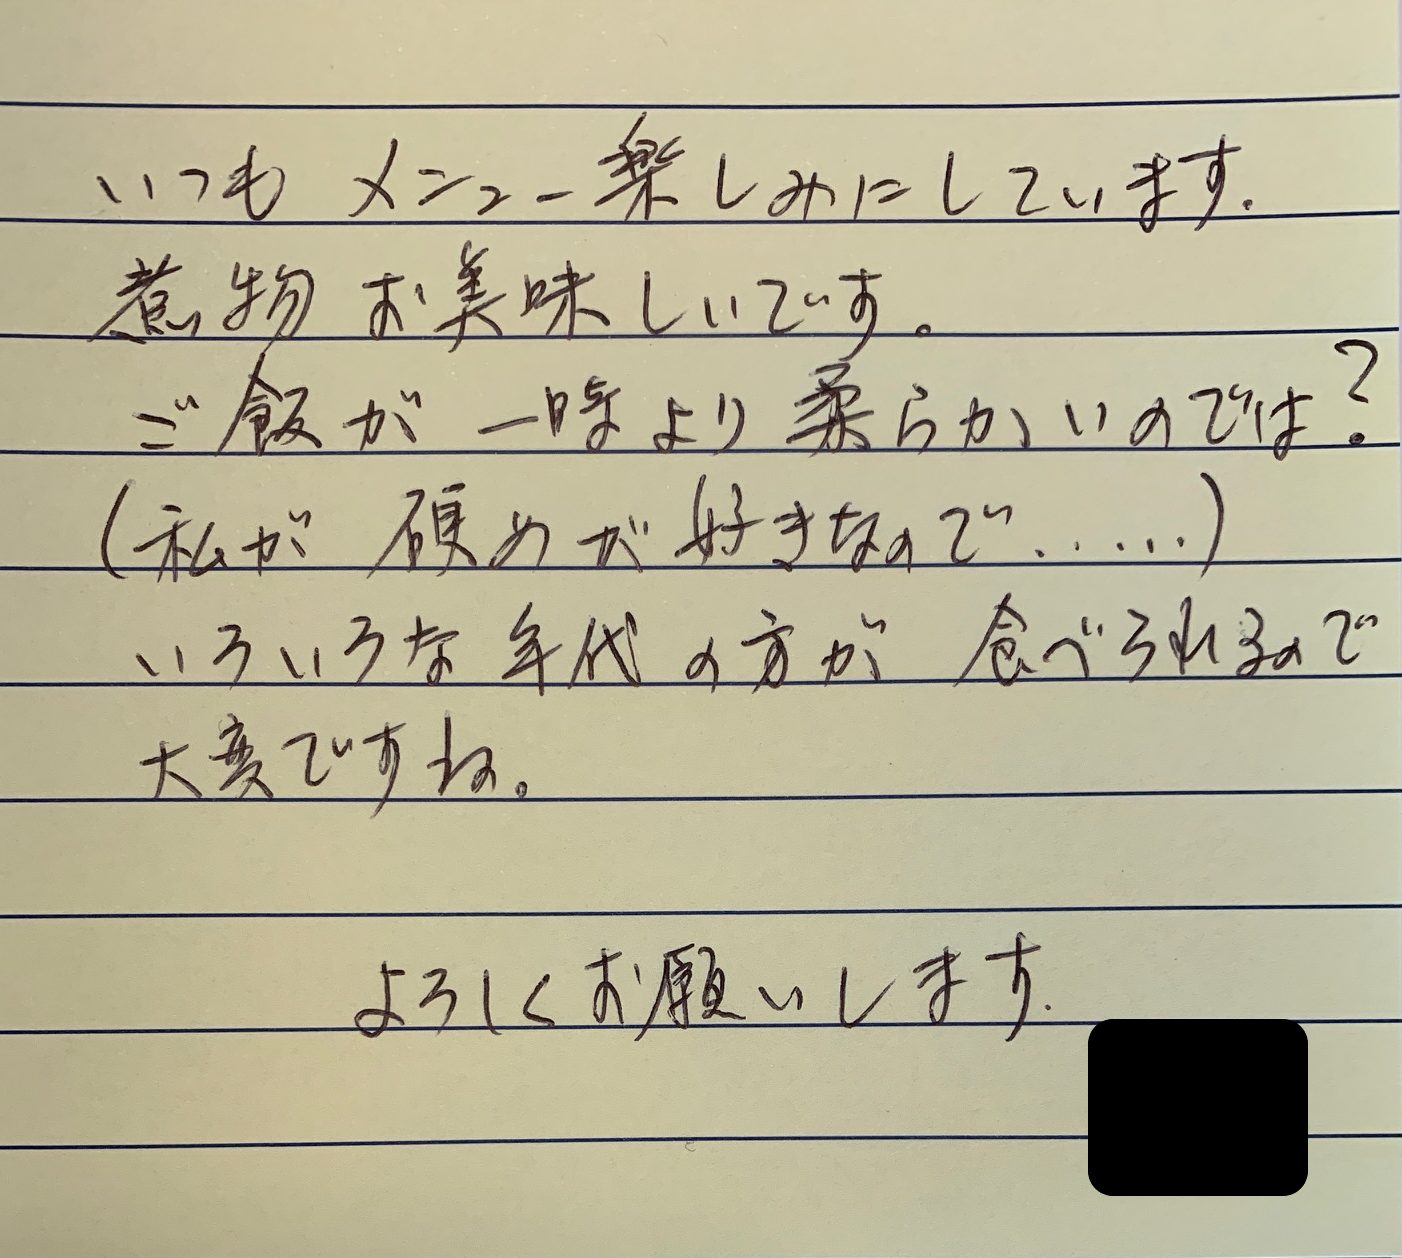 いつもメニュー楽しみにしています.
煮物お美味しいです。
ご飯が一時より柔らかいのでは?
(私が硬めが好きなので......)
いろいろな年代の方が食べられるので
大変ですね。
よろしくお願いします.